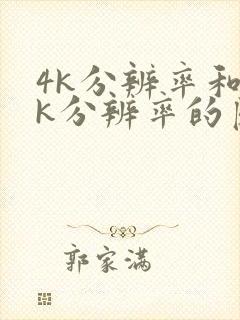 4K分辨率和
K分辨率的
郭家满